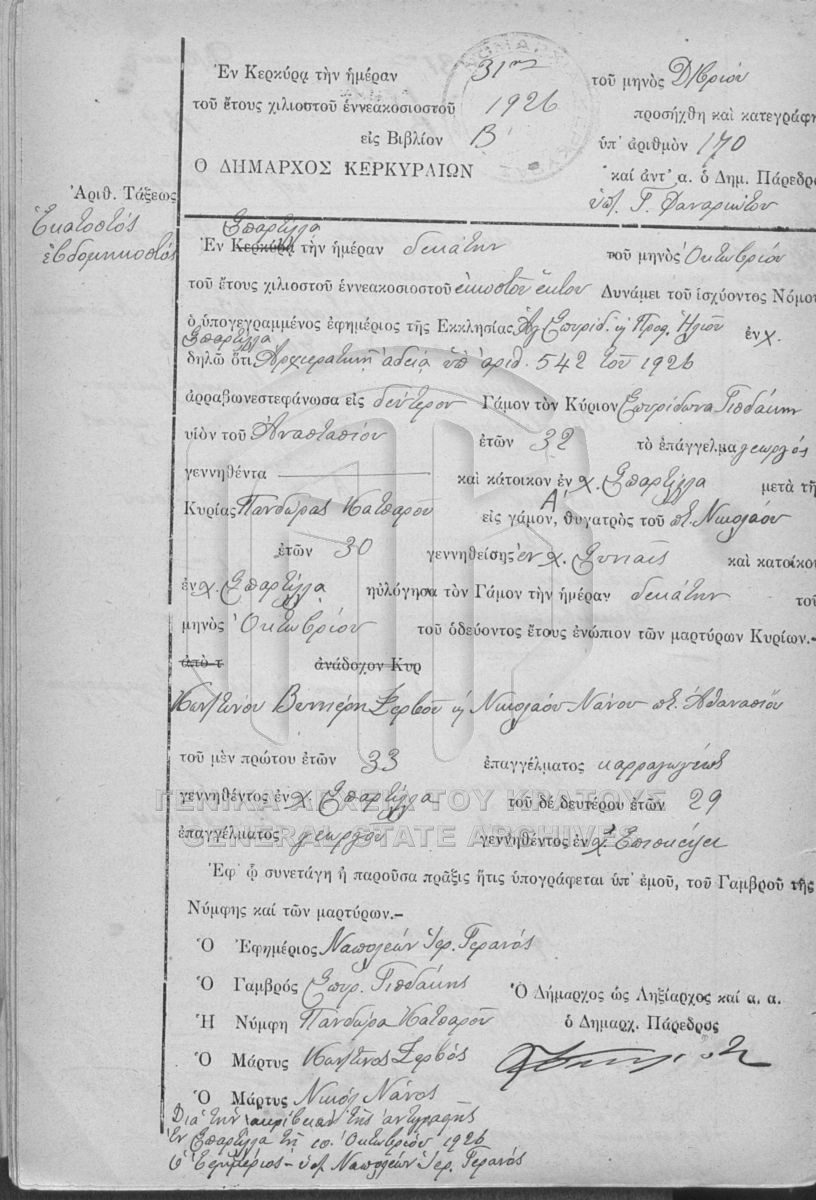 Ἐν Κερκύρᾳ τὴν ἡμέραν 31ην τοῦ μηνὸς Δ/βρίου
τοῦ ἔτους χιλιοστοῦ ἐννεακοσιοστοῦ 1926 προσήχθη καὶ κατεγράφη
εἰς Βιβλίον Β' ὑπ' ἀριθμὸν 170
Ο ΔΗΜΑΡΧΟΣ ΚΕΡΚΥΡΑΙΩΝ καί ἀντ' α. ὁ Δημ. Πάρεδρο
ὑπ. Γ.
Ἀριθ. Τάξεως
Ἑκατοστός
ἑβδομηκοστός
Σπαρτύλλα
Ἐν Κερκύρᾳ τὴν ἡμέραν δεκάτην τοῦ μηνὸς Ὀκτωβρίου
τοῦ ἔτους χιλιοστοῦ ἐννεακοσιοστοῦ εἰκοστοῦ ἕκτου Δυνάμει τοῦ ἰσχύοντος Νόμου
ὁ ὑπογεγραμμένος ἐφημέριος τῆς Ἐκκλησίας Ἁγ. Σπυρίδ. ἢ Προφ. Ἠλιοῦ ἐν χ.
Σπαρτύλλα
δηλῶ ὅτι Ἀρχιερατικῇ ἀδείᾳ ὑπ' ἀριθ. 542 τοῦ 1926
ἀρραβωνεστεφάνωσα εἰς δεύτερον Γάμον τὸν Κύριον Σπυρίδωνα
υἱὸν τοῦ Ἀναστασίου ἐτῶν 32 τὸ ἐπάγγελμα γεωργός
γεννηθέντα καὶ κάτοικον ἐν χ. Σπαρτύλλα μετὰ τῆ
Κυρίας Πανδώρας Κατσαροῦ εἰς Α' γάμον, θυγατρὸς τοῦ π. Νικολάου
ἐτῶν 30 γεννηθείσης ἐν χ. καὶ κατοίκου
ἐν χ. Σπαρτύλλα ηὐλόγησα τὸν Γάμον τὴν ἡμέραν δεκάτην τοῦ
μηνὸς Ὀκτωβρίου τοῦ ὁδεύοντος ἔτους ἐνώπιον τῶν μαρτύρων Κυρίων.-
ἀπὸ τ ἀνάδοχον Κυρ
Κων/τίνου Σερβοῦ ἢ Νικολάου Νάνου π. Ἀθανασίου
τοῦ μὲν πρώτου ἐτῶν 33 ἐπαγγέλματος καρραγωγέως
γεννηθέντος ἐν χ. Σπαρτύλλα τοῦ δὲ δευτέρου ἐτῶν 29
ἐπαγγέλματος γεωργοῦ γεννηθέντος ἐν χ. Ἐπισκέψει
Ἐφ' ᾧ συνετάγη ἡ παροῦσα πρᾶξις ἥτις ὑπογράφεται ὑπ' ἐμοῦ, τοῦ Γαμβροῦ τῆς
Νύμφης καί τῶν μαρτύρων.-
Ὁ Ἐφημέριος Ναπολεών Ἱερ. Γερανός
Ὁ Γαμβρός Σπυρ.
Ὁ Δήμαρχος ὡς Ληξίαρχος καί α. α.
Ἡ Νύμφη Πανδώρα Κατσαροῦ ὁ Δημαρχ. Πάρεδρος
Ὁ Μάρτυς Κων/τῖνος Σερβός
Ὁ Μάρτυς Νικόλ. Νάνος
Διὰ τὴν ἀκρίβειαν τῆς ἀντιγραφῆς
Ἐν Σπαρτύλλα τῇ 10 Ὀκτωβρίου 1926
Ὁ Ἐφημέριος - ὑπ. Ναπολεών Ἱερ. Γερανός
ΓΕΝΙΚΑ ΑΡΧΕΙΑ ΤΟΥ ΚΡΑΤΟΥΣ
GENERAL STATE ARCHIVES